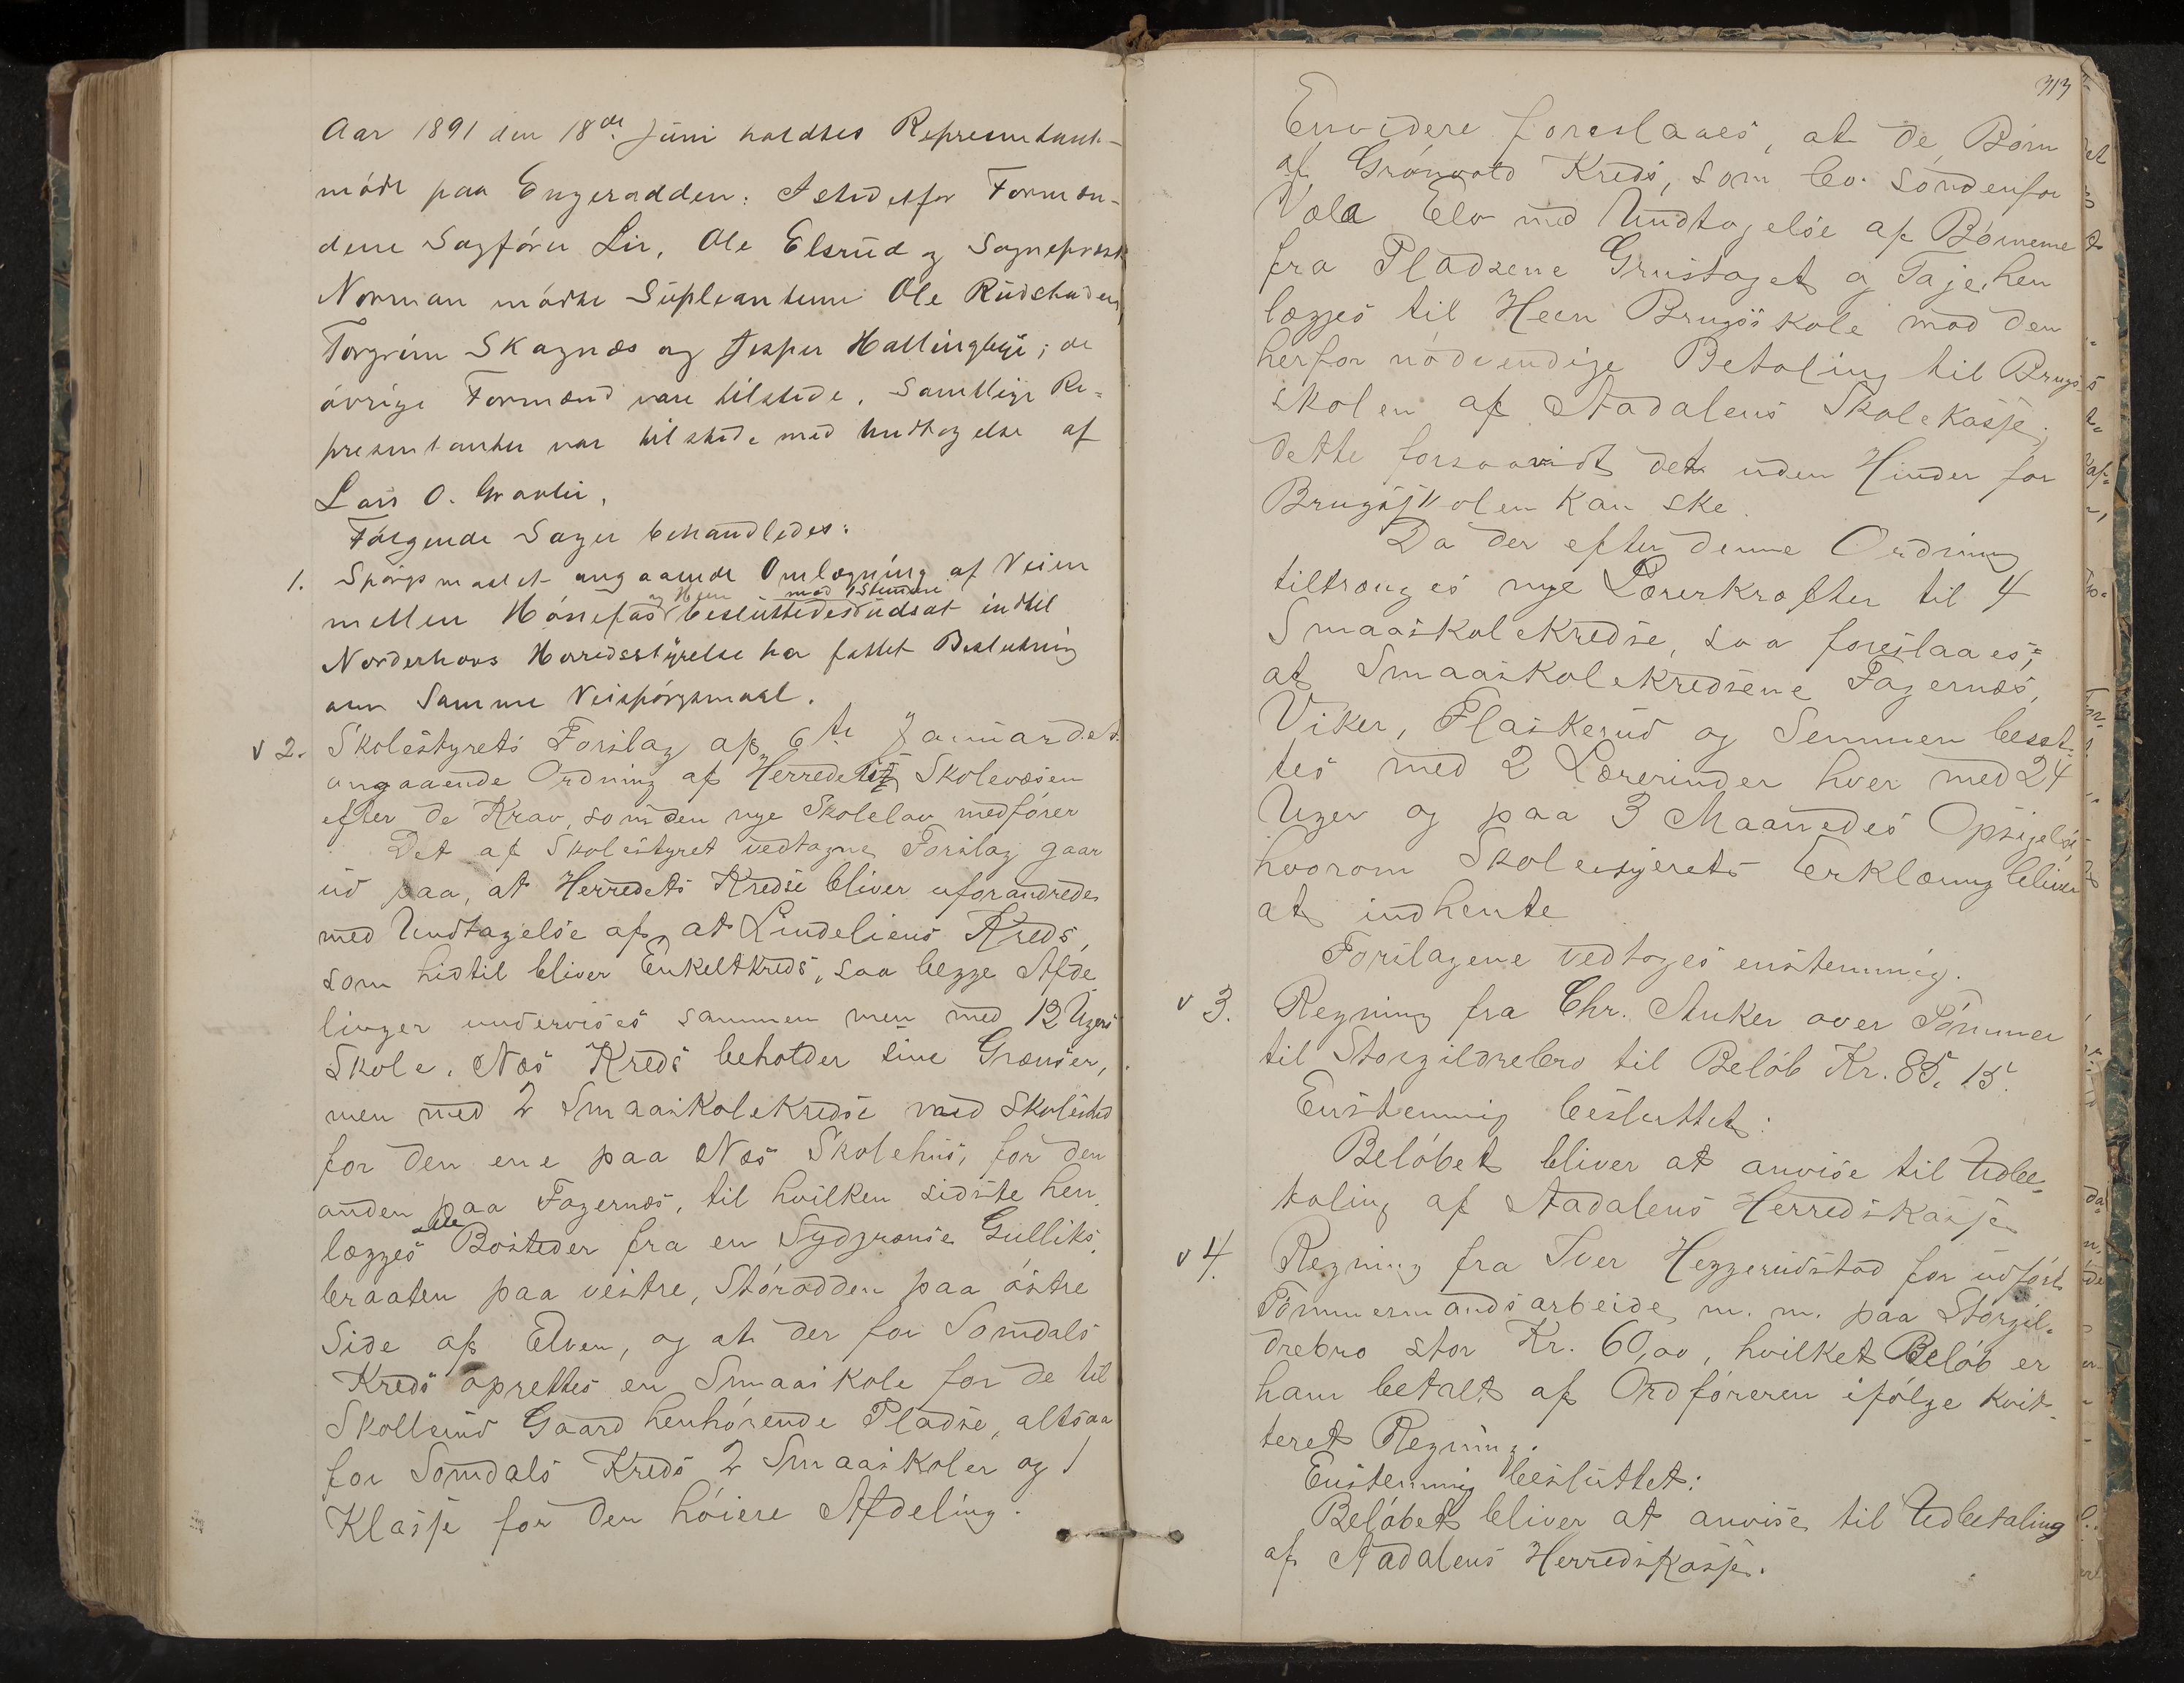 Aar 1891 den 18de Juni holdtes Representant-
møde paa Engeradden: Istedetfor Formæn-
dene Sagfører Lie, Ole Elsrud og Sogneprest
Norman mødte Supleanterne Ole Rudstaden,
Torgrim Skagnæs og Jesper Hallingbye; de
øvrige Formænd vare tilstede. Samtlige Re-
presentanter var tilstede med Undtagelse af
Lars O. Gravlie.
Følgende Sager behandledes:
1. Spørgsmaalet angaaende Omlægning af Veien
og Heen med 1 Stemme
mellem Hønefos besluttedes udsat indtil
Norderhovs Herredsstyrelse har fattet Beslutning
om samme Veispørgsmaal.
v 2. Skolestyrets Forslag af 6te Januar d.A.
angaaende Ordning af Herredets Skolevæsen
efter de Krav, som den nye Skolelov medfører
Det af Skolestyret vedtagne Forslag gaar
ud paa, at Herredets Kredse bliver uforandrede
med Undtagelse af, at Lindeliens Kreds,
som hidtil bliver Enkeltkreds, saa begge Afde-
linger undervises sammen men med 12 Ugers
Skole. Næs Kreds beholder sine Grænser,
men med 2 Smaaskolekredse med Skolested
for den ene paa Næs Skolehus, for den
anden paa Fagernæs, til hvilken sidste hen-
alle
lægges Bosteder fra en Sydgrænse Gulliks-
braaten paa vestre, Storødden paa østre
Side af Elven, og at der for Somdals
Kreds oprettes en Smaaskole for de til
Skollerud Gaard henhørende Pladse, altsaa
for Somdals Kreds 2 Smaaskoler og 1
Klasse for den høiere Afdeling.
313
Envidere foreslaaes, at de Børn
af Grønvold Kreds, som bo søndenfor
Væla Elv med Undtagelse af Børnene
fra Pladsene Grustaget og Taje, hen
lægges til Heen Brugsskole mod den
herfor nødvendige Betaling til Brugs-
skolen af Aadalens Skolekasse;
dette forsaavidt det uden Hinder for
Brugsskolen kan ske.
Da der efter denne Ordning
tiltrænges nye Lærerkræfter til 4
Smaaskolekredse, saa foreslaaes,
at Smaaskolekredsene Fagernæs,
Viker, Flaskerud og Semmen besæt-
tes med 2 Lærerinder hver med 24
Uger og paa 3 Maaneders Opsigelse
hvorom Skolestyrets Erklæring bliver
at indhente
Forslagene vedtoges enstemmig.
v 3. Regning fra Chr. Anker over Tømmer
til Storgildrebro til Beløb Kr. 85,15.
Enstemmig besluttet:
Beløbet bliver at anvise til Udbe-
taling af Aadalens Herredskasse
v 4. Regning fra Iver Heggerudstad for udført
Tømmermandsarbeide m. m. paa Storgil-
drebro stor Kr. 60,00, hvilket Beløb er
ham betalt af Ordføreren ifølge kvit-
teret Regning.
Enstemmig besluttet:
Beløbet bliver at anvise til Udbetaling
af Aadalens Herredskasse.